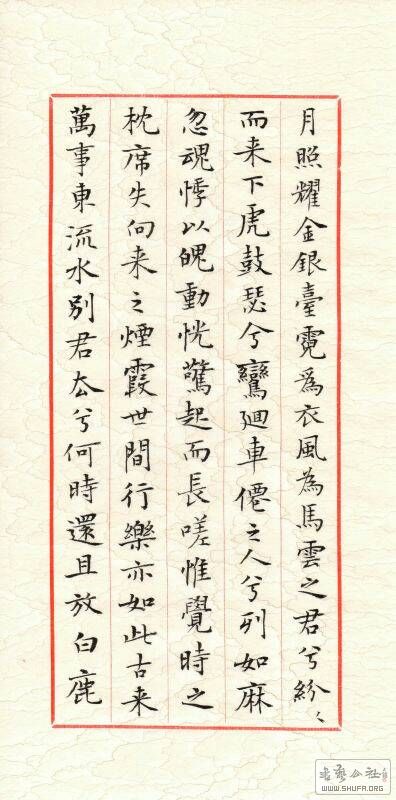 月照耀金銀臺霓爲衣風為馬雲之君兮紛〻
而来下虎鼓瑟兮鸞廻車僊之人兮列如麻
忽魂悸以魄動恍驚起而長嗟惟覺時之
枕席失向来之煙霞世間行樂亦如此古来
萬事東流水別君去兮何時還且放白鹿
WWW.SHUFA.ORG